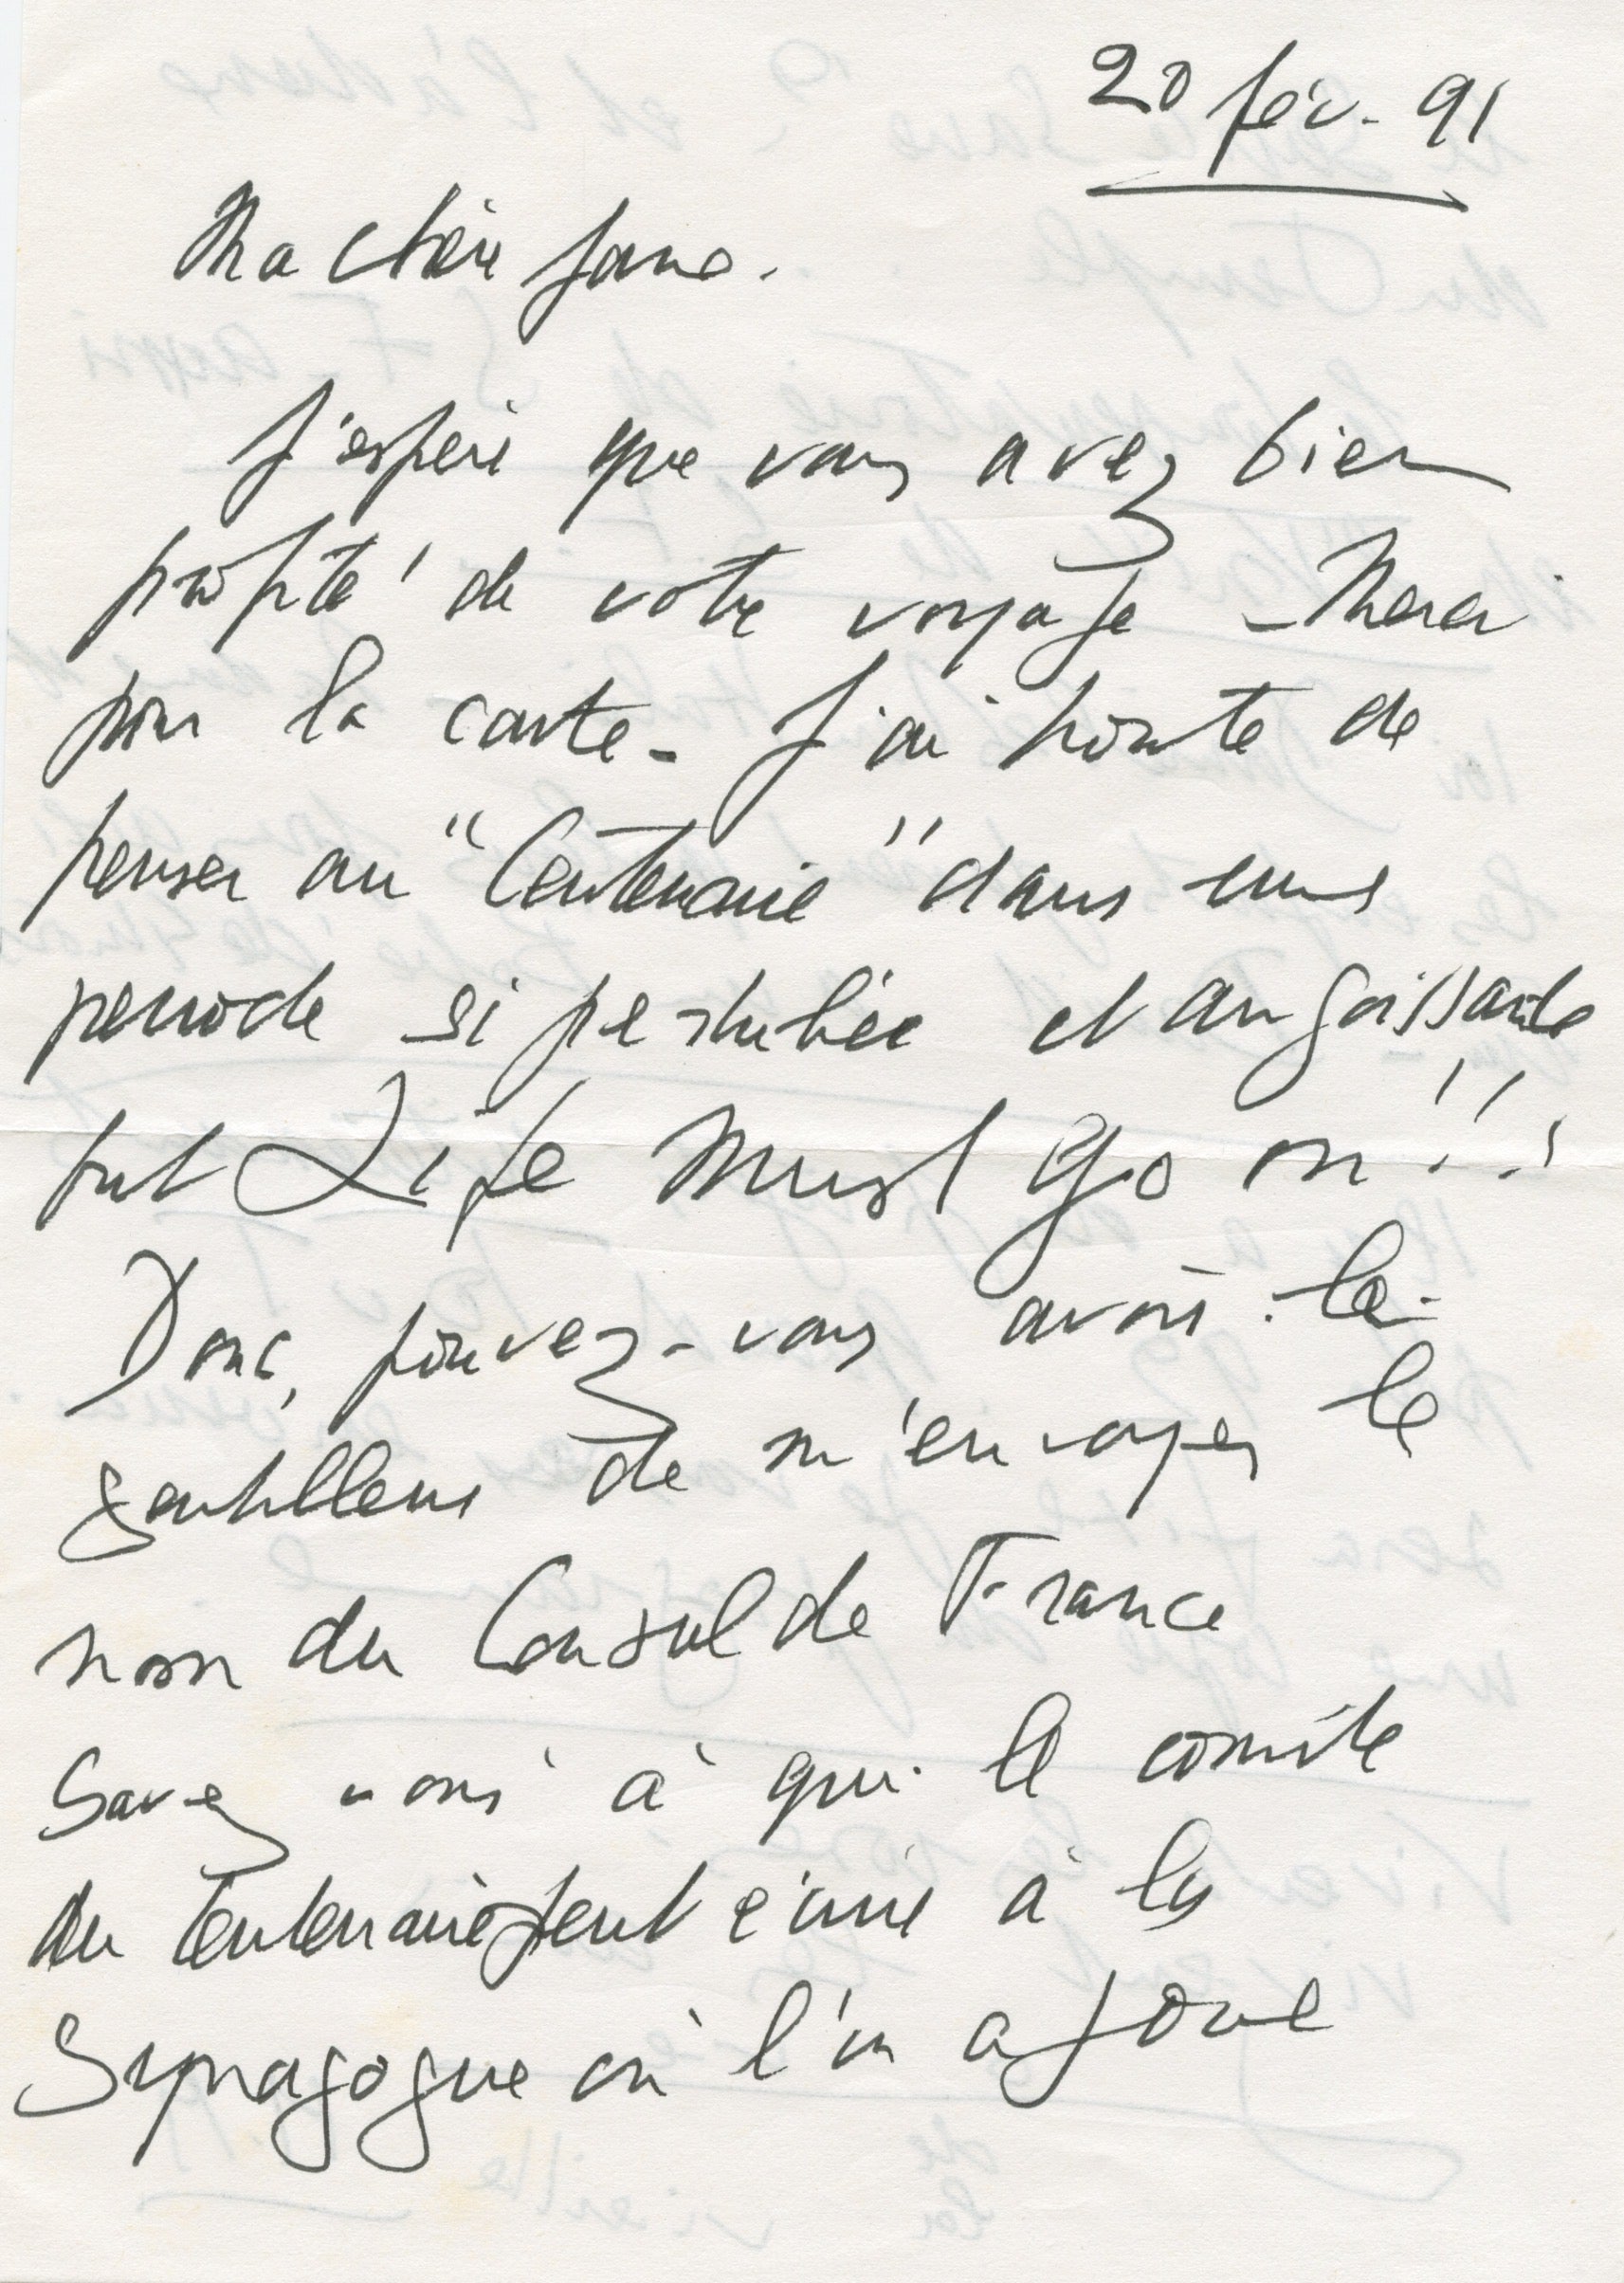 20 fév. 91
Ma chère Jane.
J'espère que vous avez bien
profité de votre voyage - Merci
pour la carte - J'ai honte de
penser au "Centenaire" dans une
periode si perturbée et angoissante
but Life Must go on !!!
Donc, pouvez-vous avoir la
gentillesse de m'envoyer le
nom du Consul de France
Savez vous à qui le comité
du Centenaire peut écrire à la
Synagogue où l'on a joué